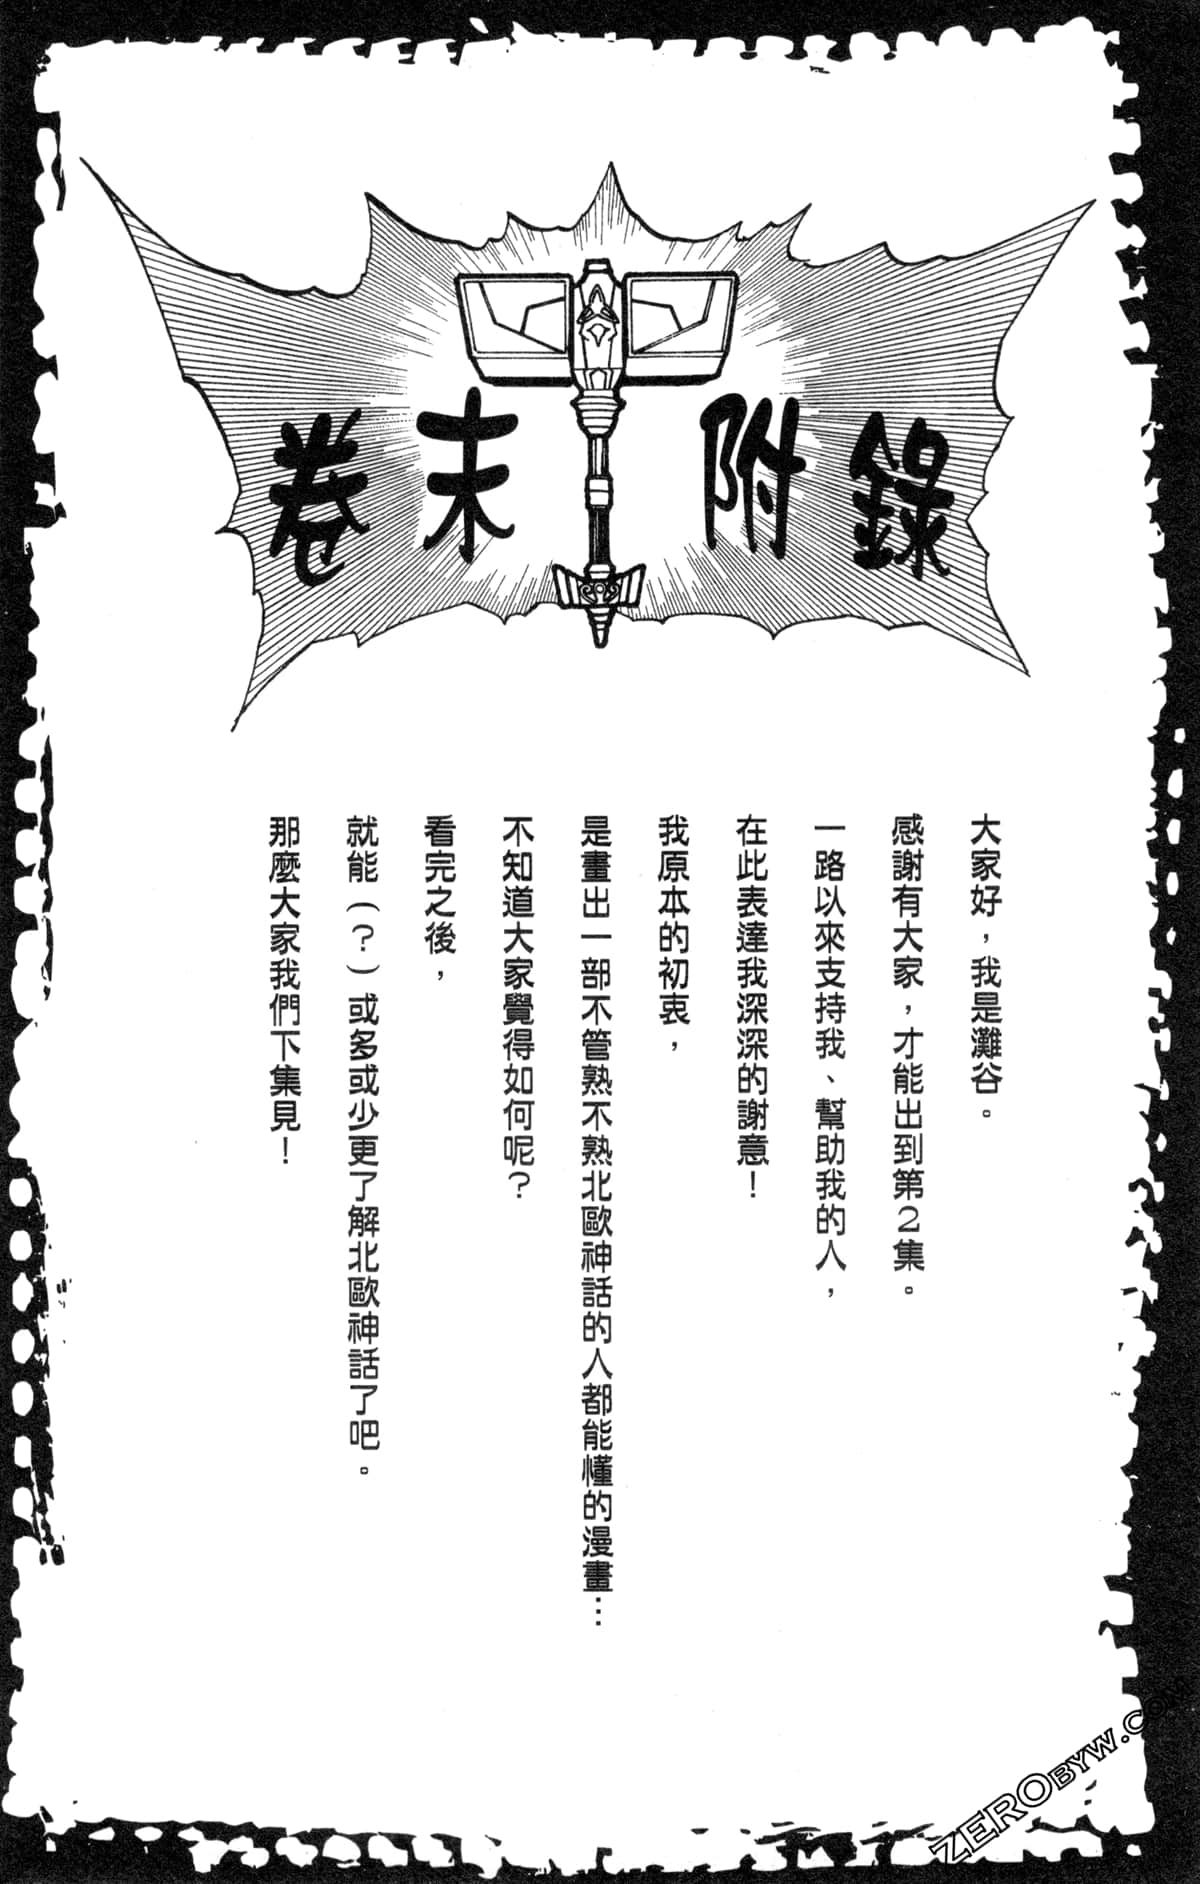 卷末附錄
大家好，我是灘谷。
感謝有大家，才能出到第2集。
一路以來支持我、幫助我的人，
在此表達我深深的謝意！
我原本的初衷，
是畫出一部不管熟不熟北歐神話的人都能懂的漫畫…
不知道大家覺得如何呢？
看完之後，
就能（？）或多或少更了解北歐神話了吧。
那麼大家我們下集見！
ZEROBYW.COM